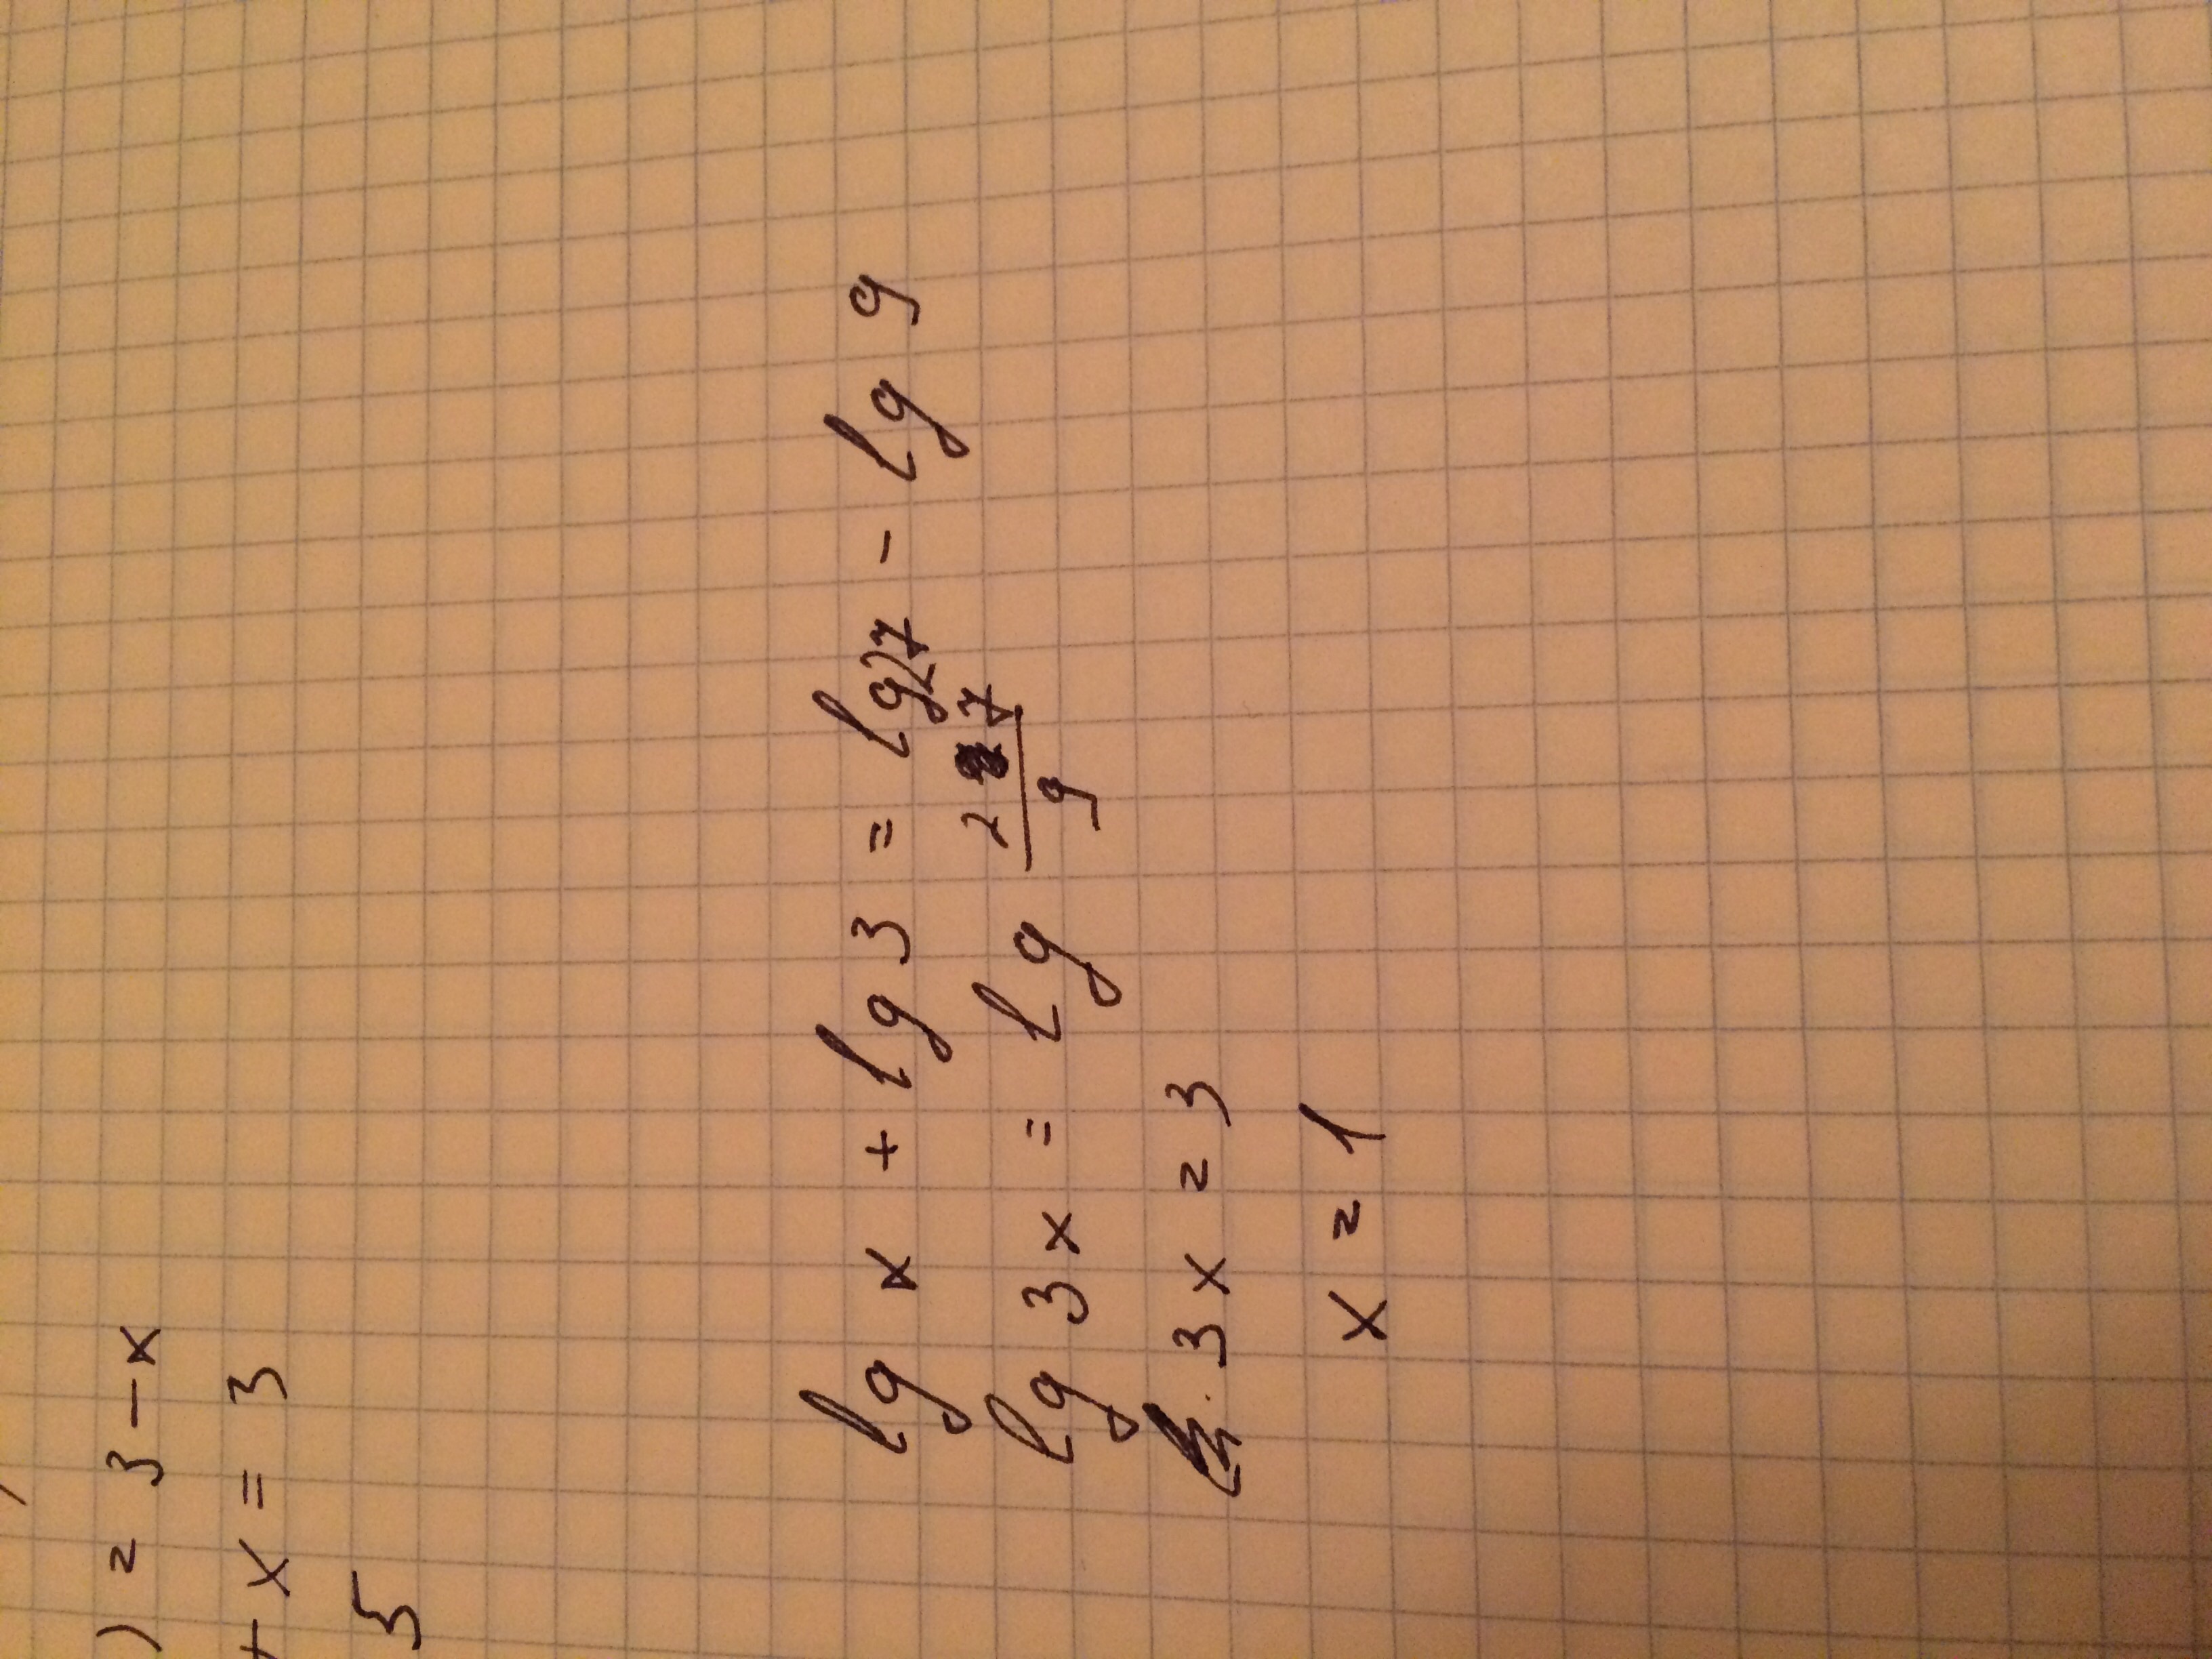 ) = 3 - x
+ x = 3
5
lg x + lg 3 = lg 27 - lg 9
lg 3x = lg 27/9
3x = 3
x = 1